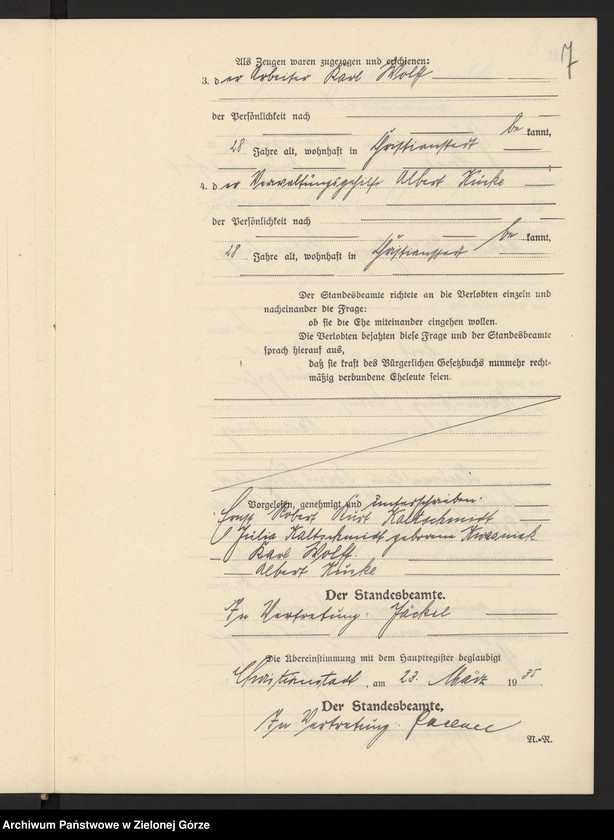 7
Als Zeugen waren zugezogen und erschienen:
3. der Arbeiter Karl Wolff
der Persönlichkeit nach
be kannt,
28 Jahre alt, wohnhaft in Christianstadt
4. der Verwaltungsgehilfe Albert Hincke
der Persönlichkeit nach
be kannt,
28 Jahre alt, wohnhaft in Christianstadt
Der Standesbeamte richtete an die Verlobten einzeln und
nacheinander die Frage:
ob sie die Ehe miteinander eingehen wollen.
Die Verlobten bejahten diese Frage und der Standesbeamte
sprach hierauf aus,
daß sie kraft des Bürgerlichen Gesetzbuchs nunmehr recht-
mäßig verbundene Eheleute seien.
Vorgelesen, genehmigt und unterschrieben.
Ernst Robert Kurt Kaltschmidt
Julia Kaltschmidt geborene
Karl Wolff
Albert Hincke
Der Standesbeamte.
In Vertretung: Jäckel
Die Übereinstimmung mit dem Hauptregister beglaubigt
Christianstadt, am 23. März 1935.
Der Standesbeamte,
In Vertretung:
N.-R.
Archiwum Państwowe w Zielonej Górze